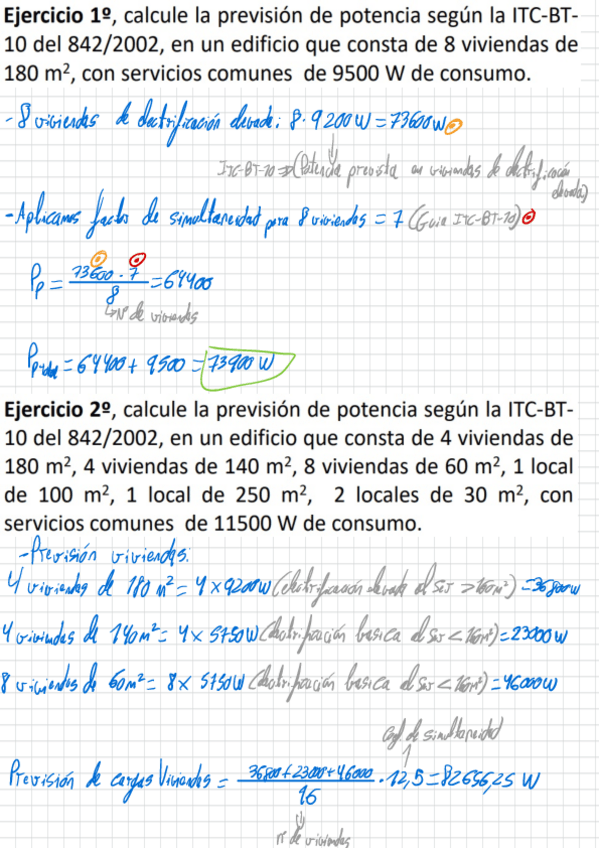 Ejercicio 1º, calcule la previsión de potencia según la ITC-BT-
10 del 842/2002, en un edificio que consta de 8 viviendas de
180 m², con servicios comunes de 9500 W de consumo.
- 8 viviendas de electrificación elevada: 8 · 9200W = 73600W
ITC-BT-10 ⇒ (Potencia prevista en viviendas de electrificación
elevada)
- Aplicamos factor de simultaneidad para 8 viviendas = 7 (Guia ITC-BT-10)
Pp = 73600 · 7 / 8 = 64400
↳ Nº de viviendas
= 64400 + 9500 = 73900 W
Ejercicio 2º, calcule la previsión de potencia según la ITC-BT-
10 del 842/2002, en un edificio que consta de 4 viviendas de
180 m², 4 viviendas de 140 m², 8 viviendas de 60 m², 1 local
de 100 m², 1 local de 250 m², 2 locales de 30 m², con
servicios comunes de 11500 W de consumo.
- Previsión viviendas:
4 viviendas de 180 m² = 4 x 9200W (electrificación elevada al ser > 160m²) = 36800W
4 viviendas de 140m² = 4 x 5750W (electrificación basica al ser < 160m²) = 23000W
8 viviendas de 60m² = 8 x 5750W (electrificación basica al ser < 160m²) = 46000W
Coef. de simultaneidad
Previsión de cargas Viviendas = 36800 + 23000 + 46000 / 16 · 12,5 = 82656,25 W
nº de viviendas